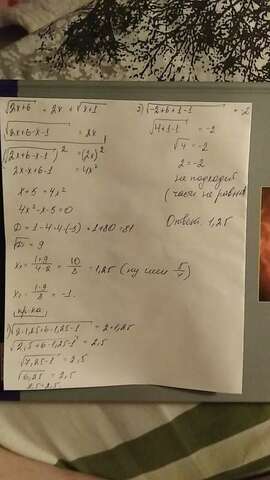 √(2x+6) = 2x + √(x+1)
√(2x+6-x-1) = 2x
(√(2x+6-x-1))² = (2x)²
2x-x+6-1 = 4x²
x+5 = 4x²
4x²-x-5=0
D = 1-4·4·(-5) = 1+80=81
√D = 9
x₁ = (1+9)/(4·2) = 10/8 = 1,25 (ну или 5/4)
x₁ = (1-9)/8 = -1.
пр-ка:
1) √(2·1,25+6-1,25-1) = 2·1,25
√(2,5+6-1,25-1) = 2,5
√(7,25-1) = 2,5
√6,25 = 2,5
2,5=2,5
2) √(-2+6+1-1) = -2
√(4+1-1) = -2
√4 = -2
2 = -2
не подходит
(части не равны)
Ответ: 1,25